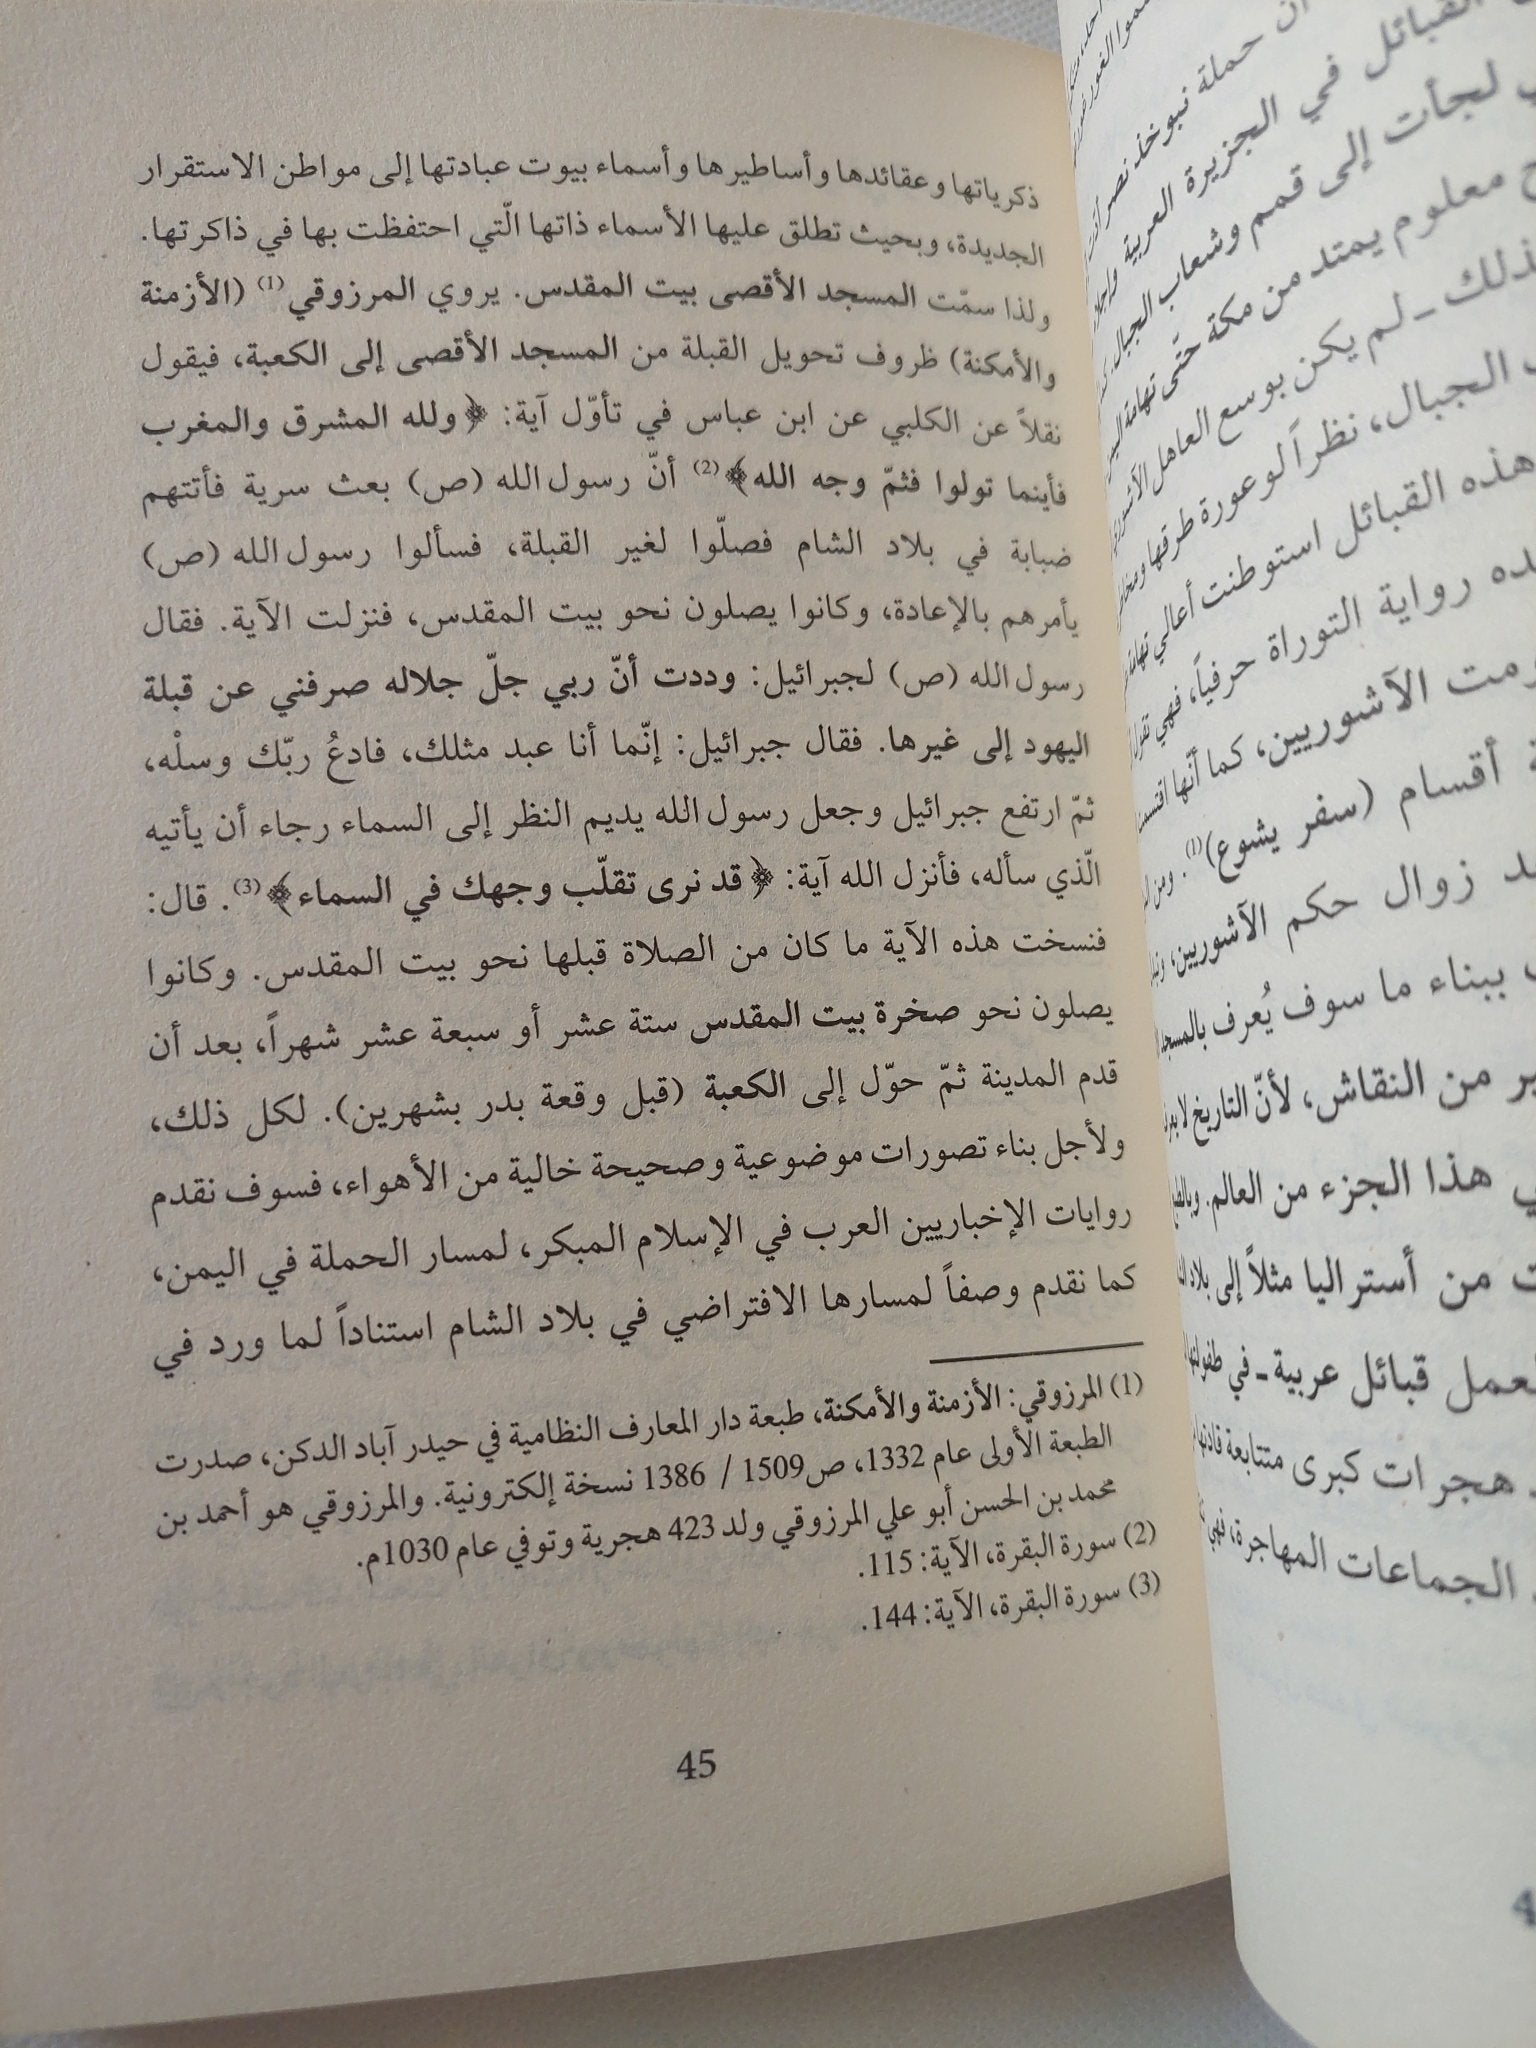 أن حملة نبوخذ نصر
القبائل في الجزيرة العربية
لجأت إلى قمم وشعاب الجبال
معلوم يمتد من مكة حتّى تهامة
ذلك - لم يكن بوسع العاهل
الجبال، نظراً لوعورة طرقها
هذه القبائل استوطنت أعالي
رواية التوراة حرفياً، فهي
الآشوريين، كما أنّها
أقسام (سفر يشوع)(1). ومن
زوال حكم الآشوريين،
ببناء ما سوف يُعرف بالمسجد
من النقاش، لأنّ التاريخ لا
هذا الجزء من العالم.
من أستراليا مثلاً إلى بلاد
قبائل عربية - في
هجرات كبرى متتابعة
الجماعات المهاجرة، فهي
ذكرياتها وعقائدها وأساطيرها وأسماء بيوت عبادتها إلى مواطن الاستقرار
الجديدة، وبحيث تطلق عليها الأسماء ذاتها الّتي احتفظت بها في ذاكرتها.
ولذا سمّت المسجد الأقصى بيت المقدس. يروي المرزوقي(1) (الأزمنة
والأمكنة) ظروف تحويل القبلة من المسجد الأقصى إلى الكعبة، فيقول
نقلاً عن الكلبي عن ابن عباس في تأوّل آية: ﴿ولله المشرق والمغرب
فأينما تولوا فثمّ وجه الله﴾(2) أنّ رسول الله (ص) بعث سرية فأتتهم
ضبابة في بلاد الشام فصلّوا لغير القبلة، فسألوا رسول الله (ص)
يأمرهم بالإعادة، وكانوا يصلون نحو بيت المقدس، فنزلت الآية. فقال
رسول الله (ص) لجبرائيل: وددت أنّ ربي جلّ جلاله صرفني عن قبلة
اليهود إلى غيرها. فقال جبرائيل: إنّما أنا عبد مثلك، فادعُ ربّك وسلْه،
ثمّ ارتفع جبرائيل وجعل رسول الله يديم النظر إلى السماء رجاء أن يأتيه
الّذي سأله، فأنزل الله آية: ﴿قد نرى تقلّب وجهك في السماء﴾(3). قال:
فنسخت هذه الآية ما كان من الصلاة قبلها نحو بيت المقدس. وكانوا
يصلون نحو صخرة بيت المقدس ستة عشر أو سبعة عشر شهراً، بعد أن
قدم المدينة ثمّ حوّل إلى الكعبة (قبل وقعة بدر بشهرين). لكل ذلك،
ولأجل بناء تصورات موضوعية وصحيحة خالية من الأهواء، فسوف نقدم
روايات الإخباريين العرب في الإسلام المبكر، لمسار الحملة في اليمن،
كما نقدم وصفاً لمسارها الافتراضي في بلاد الشام استناداً لما ورد في
(1) المرزوقي: الأزمنة والأمكنة، طبعة دار المعارف النظامية في حيدر آباد الدكن، صدرت
الطبعة الأولى عام 1332، ص1509 / 1386 نسخة إلكترونية. والمرزوقي هو أحمد بن
محمد بن الحسن أبو علي المرزوقي ولد 423 هجرية وتوفي عام 1030م.
(2) سورة البقرة، الآية: 115.
(3) سورة البقرة، الآية: 144.
45